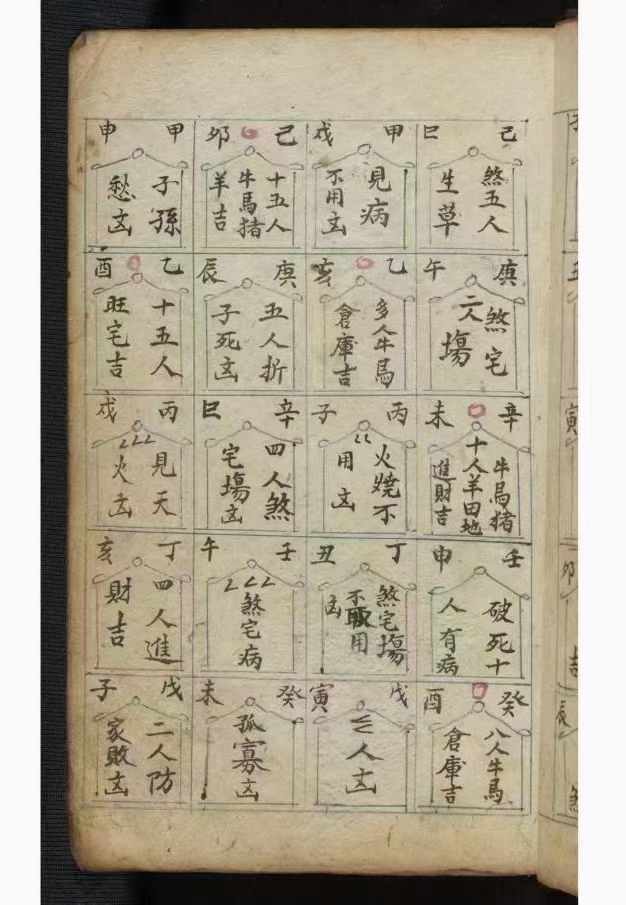 寅
卯
吉
辰
己巳
煞五人
生草
庚午
煞宅
二人
塲
辛未
牛馬猪
十人羊田地
進財吉
壬申
破死十
人有病
癸酉
八人牛馬
倉庫吉
甲戌
見病
不用凶
乙亥
多人牛馬
倉庫吉
丙子
火燒不
用凶
丁丑
煞宅塲
不取用
凶
戊寅
人凶
己卯
十五人
牛馬猪
羊吉
庚辰
五人折
子死凶
辛巳
四人煞
宅塲凶
壬午
煞宅病
癸未
孤寡凶
甲申
子孫
愁凶
乙酉
十五人
旺宅吉
丙戌
見天
火凶
丁亥
四人進
財吉
戊子
二人防
家敗凶